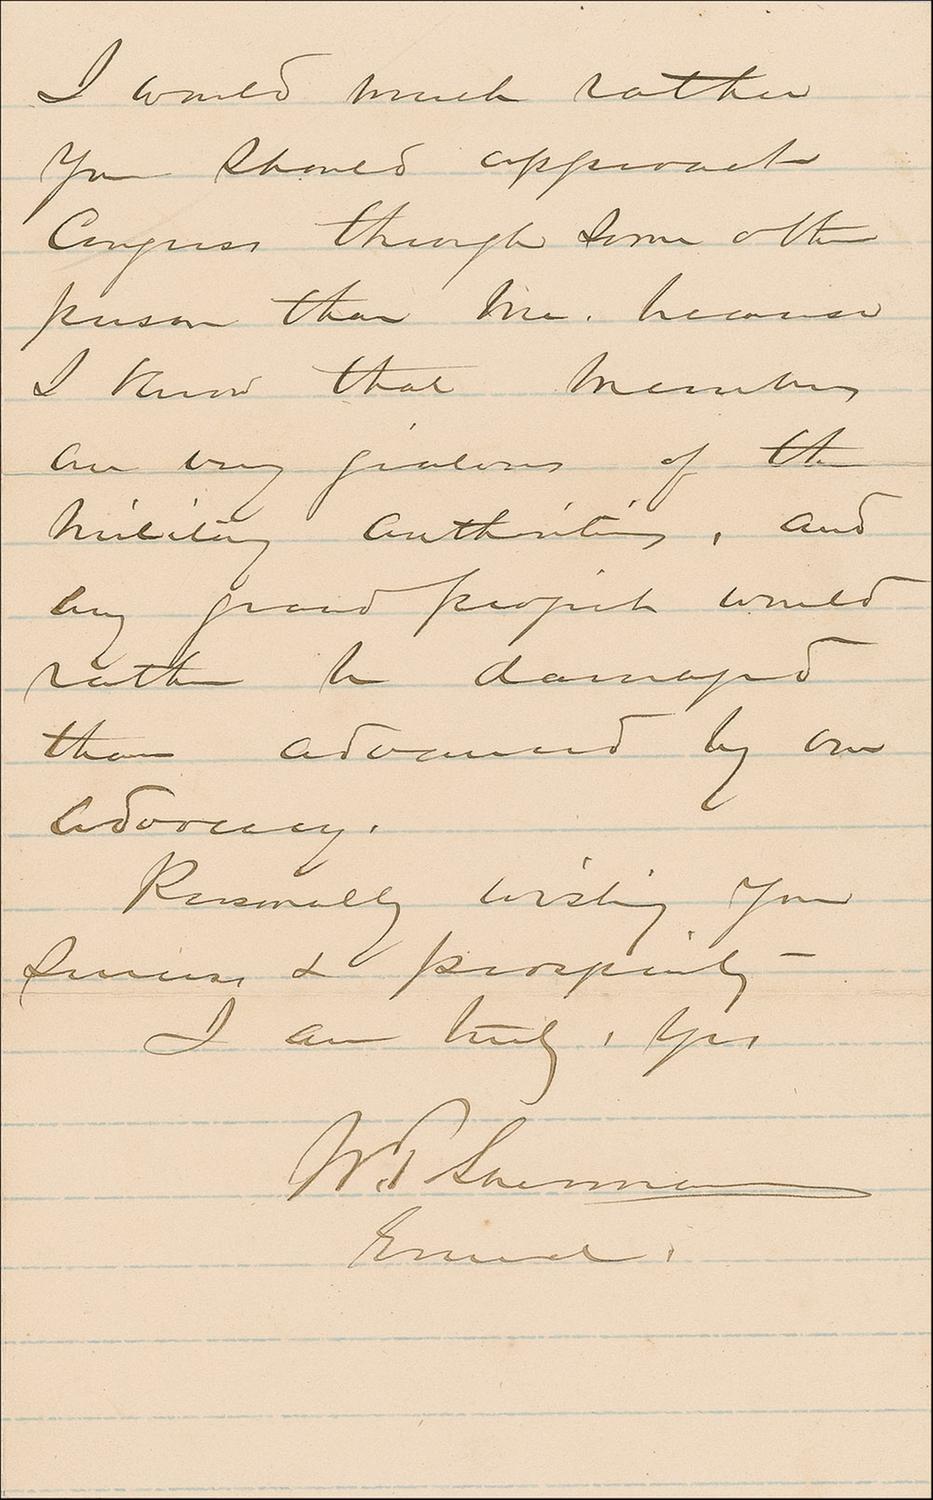 I would much rather
you should approach
Congress through some other
person than me. because
I know that members
are very jealous of the
military authorities, and
any grand project would
rather be damaged
than advanced by our
advocacy.
Personally wishing you
success & prosperity –
I am truly, Yrs,
W.T. Sherman
General.